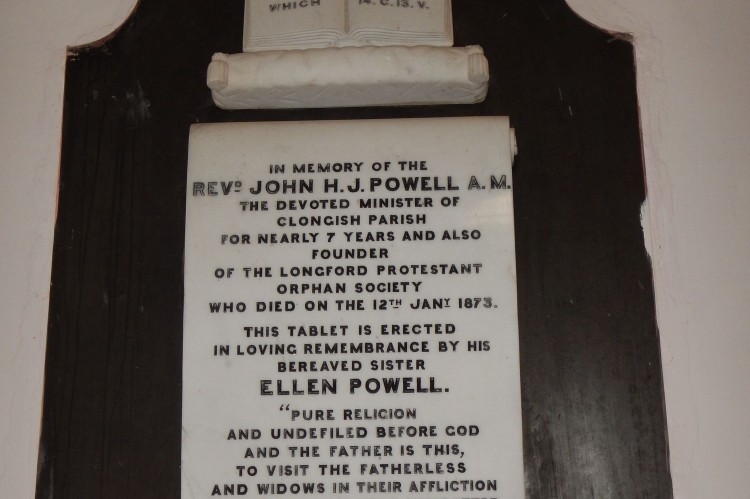 WHICH 14. C. 13. V.
IN MEMORY OF THE
REVD JOHN H. J. POWELL A. M.
THE DEVOTED MINISTER OF
CLONGISH PARISH
FOR NEARLY 7 YEARS AND ALSO
FOUNDER
OF THE LONGFORD PROTESTANT
ORPHAN SOCIETY
WHO DIED ON THE 12TH JANY 1873.
THIS TABLET IS ERECTED
IN LOVING REMEMBRANCE BY HIS
BEREAVED SISTER
ELLEN POWELL.
"PURE RELIGION
AND UNDEFILED BEFORE GOD
AND THE FATHER IS THIS,
TO VISIT THE FATHERLESS
AND WIDOWS IN THEIR AFFLICTION